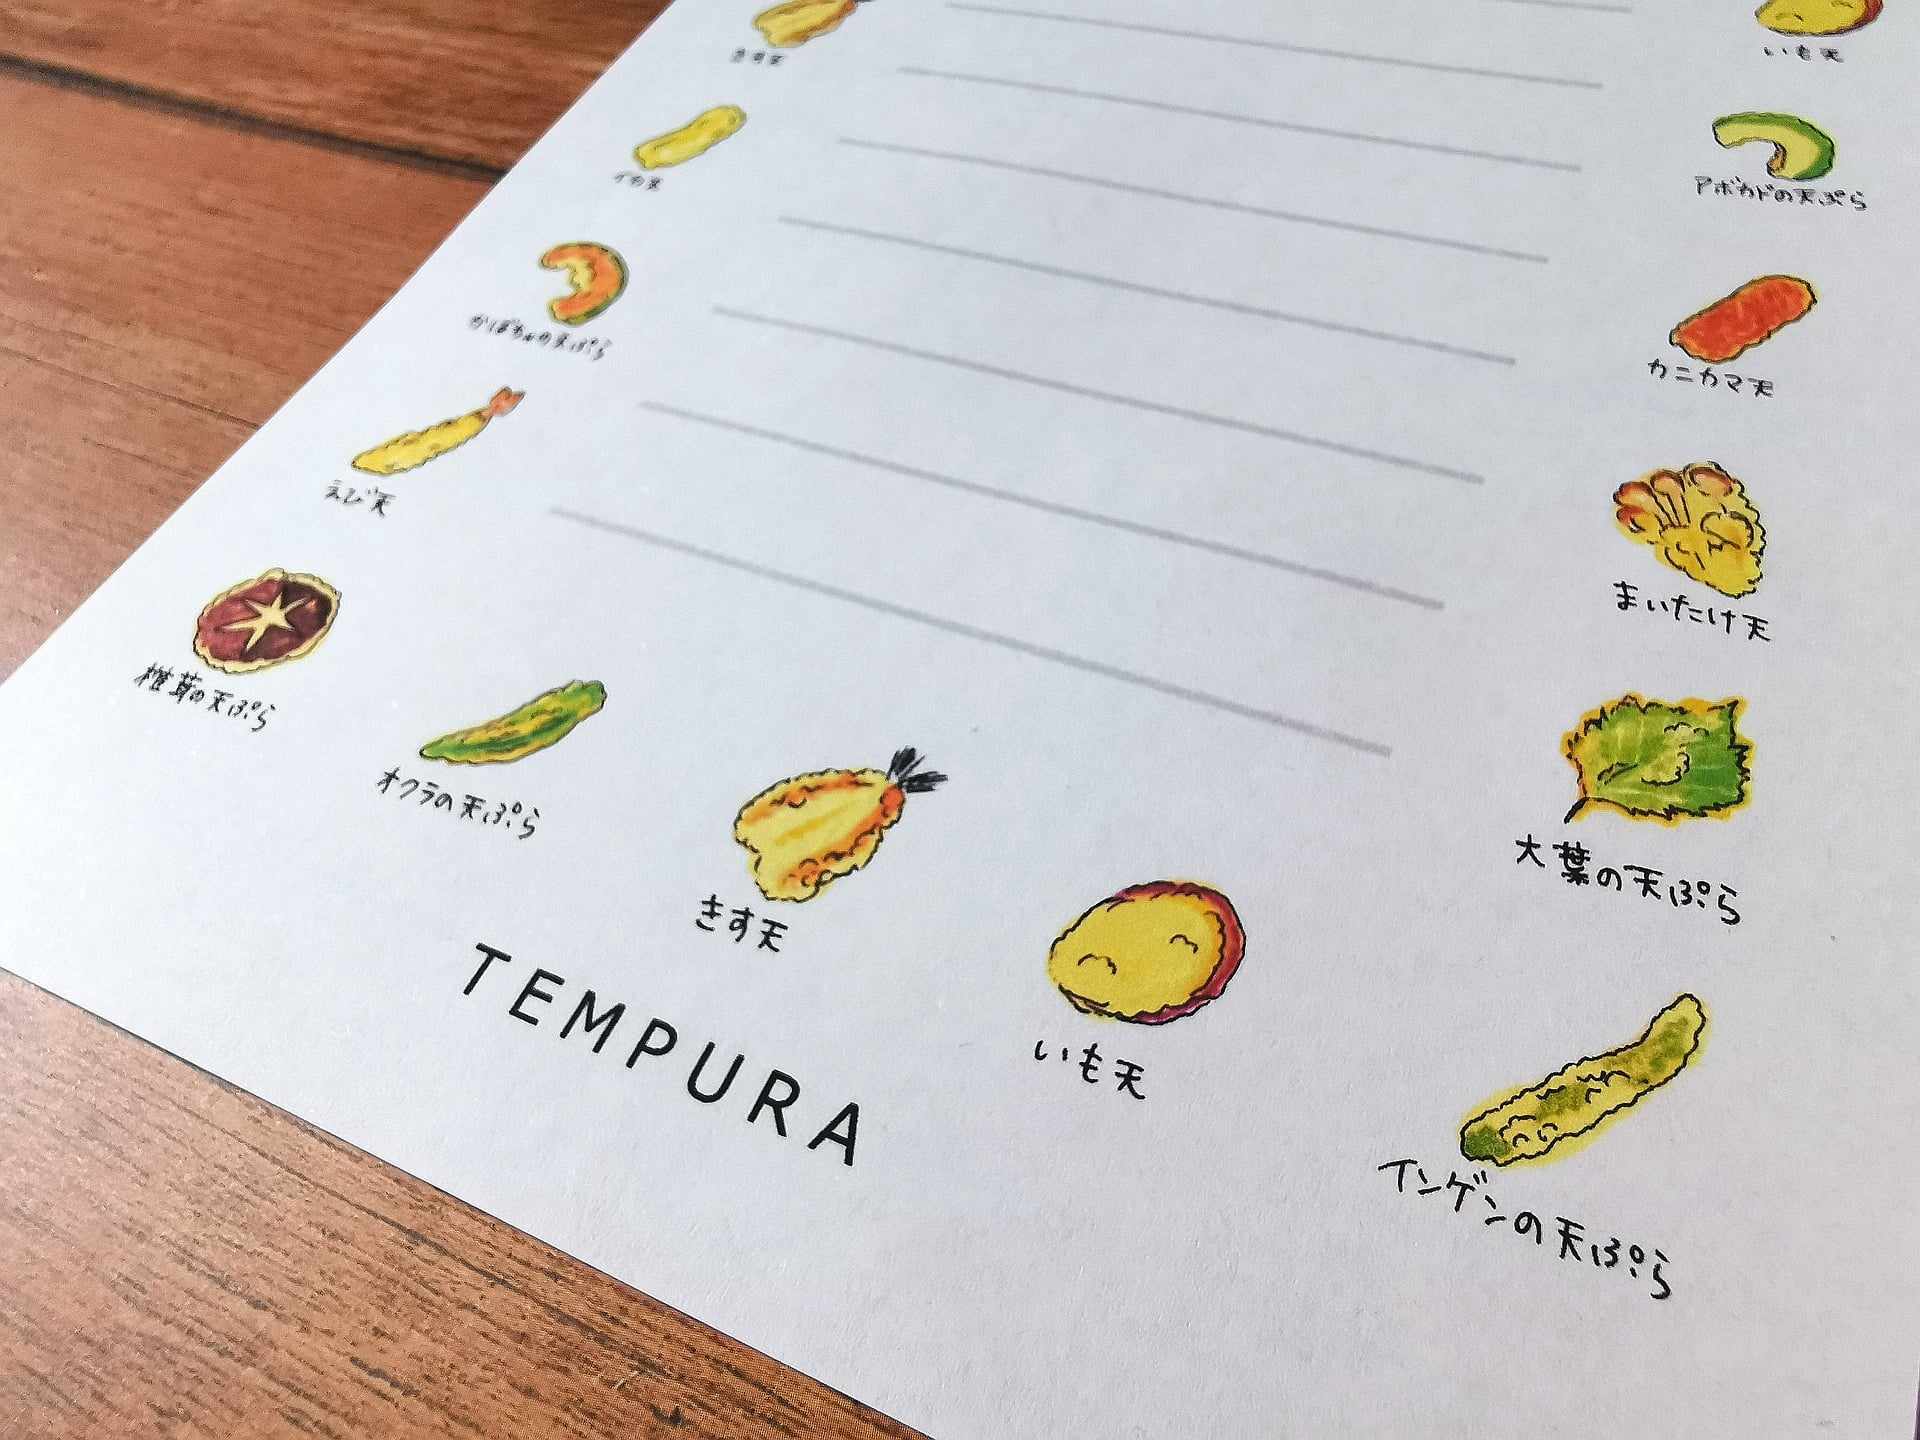 きす天
いも天
イカ天
アボカドの天ぷら
かぼちゃの天ぷら
カニカマ天
えび天
まいたけ天
椎茸の天ぷら
オクラの天ぷら
大葉の天ぷら
きす天
いも天
インゲンの天ぷら
TEMPURA